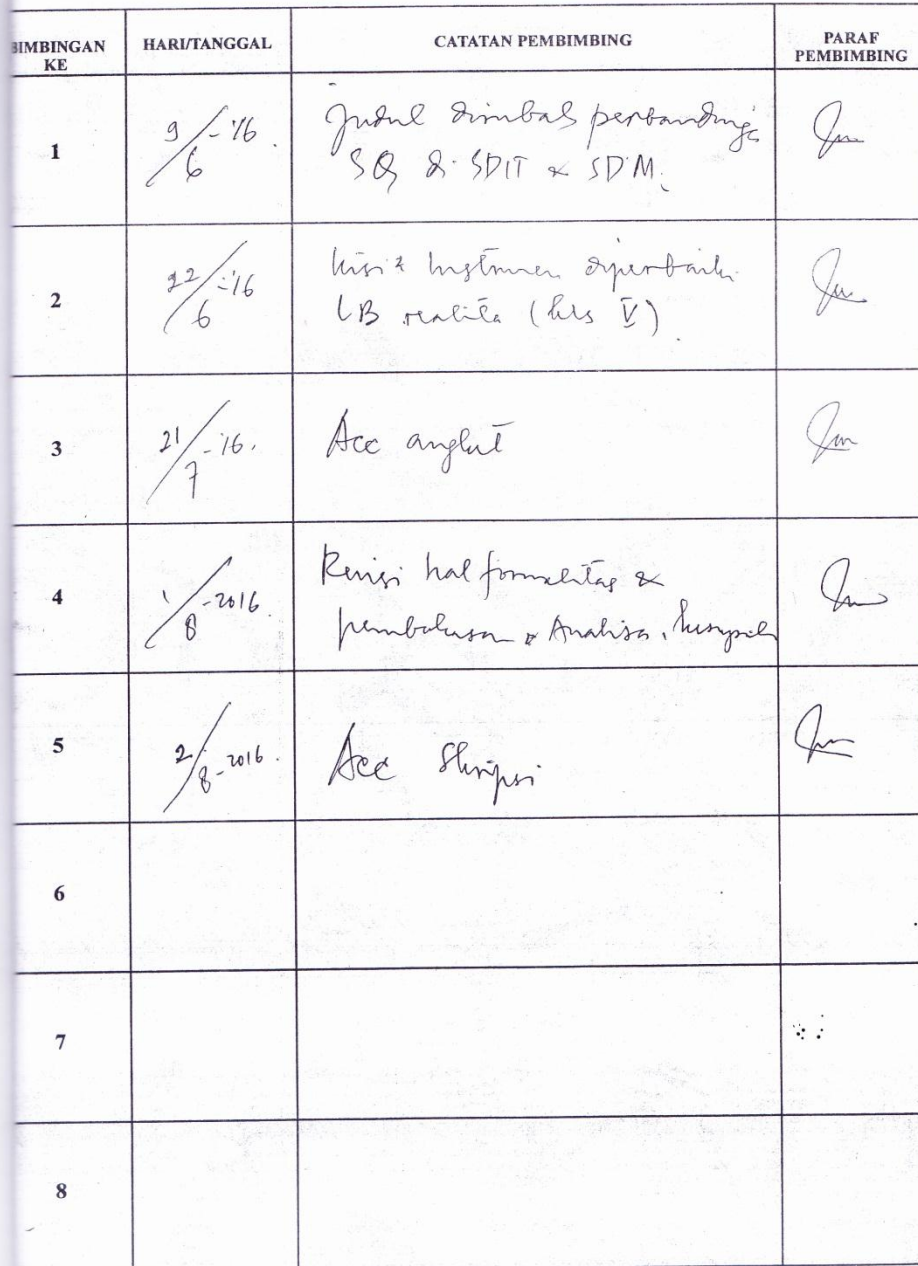 BIMBINGAN KE
HARI/TANGGAL
CATATAN PEMBIMBING
PARAF PEMBIMBING
1
9/6-'16.
Judul dirubah perbandinga
SQ di SDIT & SDM.
2
22/6-'16
kisi2 Instrumen diperbaiki
LB realita (kls V)
3
21/7-16.
Acc angket
4
1/8-2016
Revisi hal formalitas &
pembahasan Analisa, kesympul
5
2/8-2016.
Acc Skripsi
6
7
8